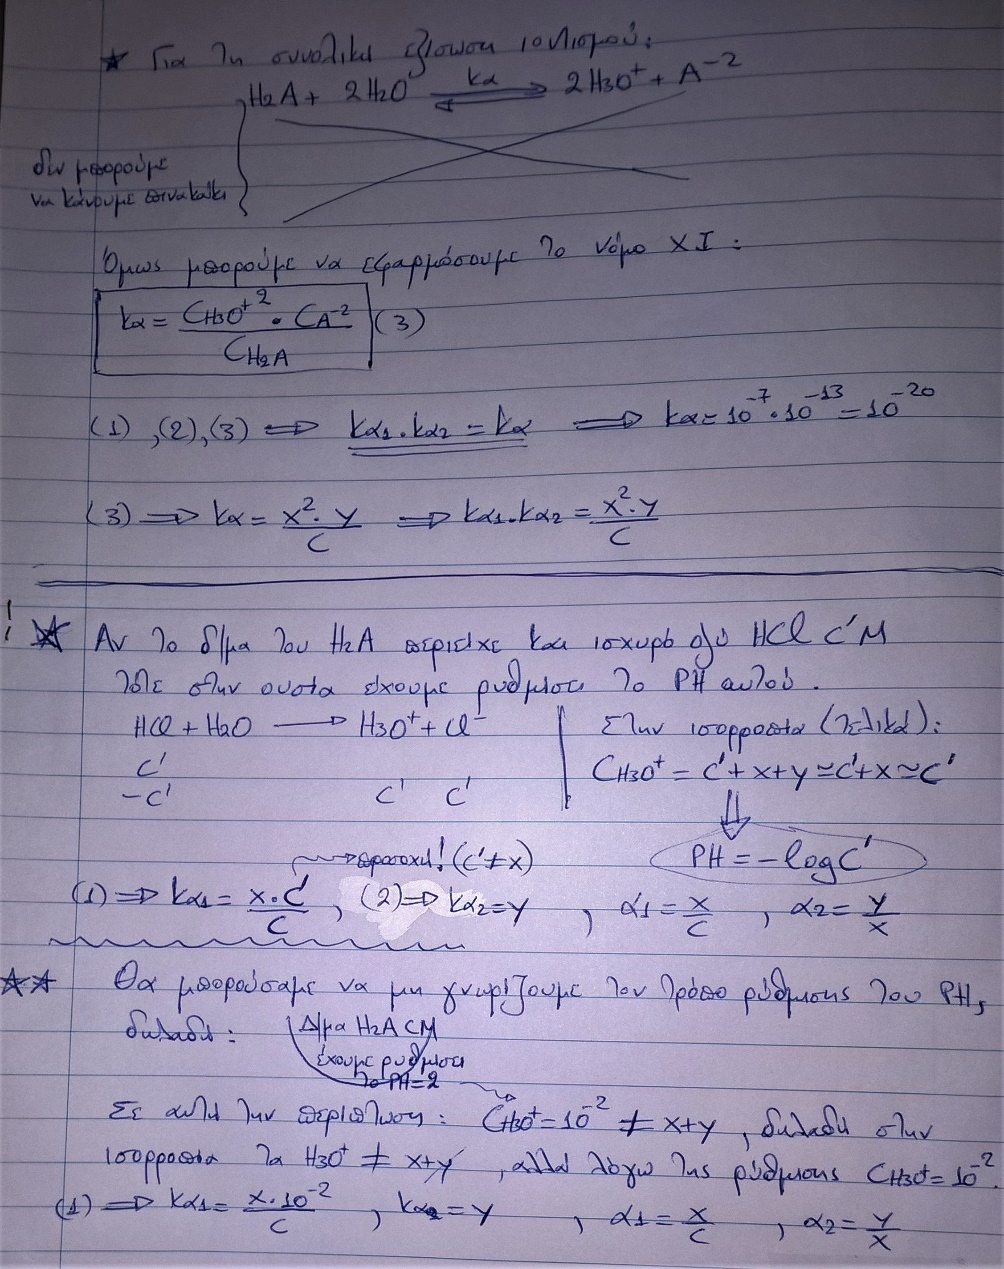 ★ Για τη συνολική εξίσωση ιοντισμού:
H2A + 2H2O ⇌ 2H3O⁺ + A⁻²
kα
δεν μπορούμε
να κάνουμε πινακάκι
Όμως μπορούμε να εφαρμόσουμε το νόμο ΧΙ:
kα = CH3O⁺² · CA⁻² / CH2A (3)
(1), (2), (3) ⇒ kα1.kα2 = kα ⇒ kα = 10⁻⁷ · 10⁻¹³ = 10⁻²⁰
(3) ⇒ kα = x². y / C ⇒ kα1.kα2 = x². y / C
! ★ Αν το δ/μα του H2A περιείχε και ισχυρό οξύ HCl C'M
τότε στην ουσία έχουμε ρύθμιση το PH αυτού.
HCl + H2O → H3O⁺ + Cl⁻
C'
-C' C' C'
Στην ισορροπία (τελικά):
CH3O⁺ = C' + x + y ≃ C' + x ≃ C'
⇓
PH = -logC'
→ προσοχή! (C' ≠ x)
(1) ⇒ kα1 = x. C' / C , (2) ⇒ kα2 = y , α1 = x / C , α2 = y / x
★★ Θα μπορούσαμε να μη γνωρίζουμε τον τρόπο ρύθμισης του PH,
δηλαδή: Δ/μα H2A CM
έχουμε ρυθμίσει
το PH=2
Σε αυτή την περίπτωση: CH3O⁺ = 10⁻² ≠ x+y , δηλαδή στην
ισορροπία τα H3O⁺ ≠ x+y , αλλά λόγω της ρύθμισης CH3O⁺ = 10⁻².
(1) ⇒ kα1 = x.10⁻² / C , kα2 = y , α1 = x / C , α2 = y / x